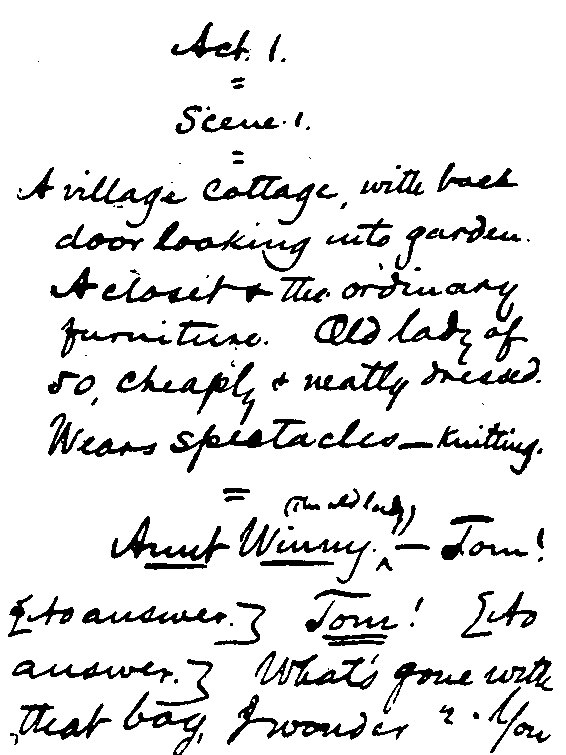 Act. 1.
=
Scene. 1.
=
A village cottage, with back
door looking into garden.
A closet & the ordinary
furniture. Old lady of
50, cheaply & neatly dressed.
Wears spectacles—knitting.
=
(The old lady)
Aunt Winny. ^ — Tom!
[No answer.] Tom! [No
answer.] What's gone with
that boy, I wonder?. You